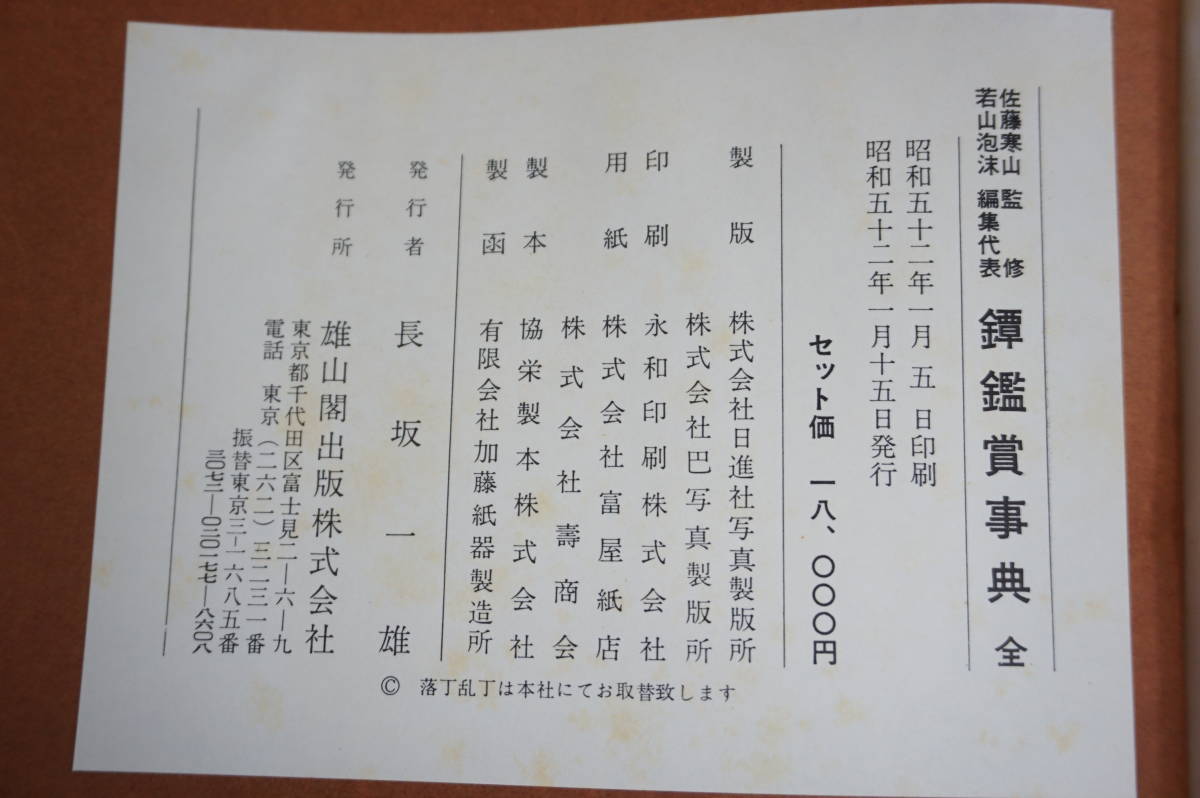 佐藤寒山 監修
若山泡沫 編集代表
鐔鑑賞事典 全
昭和五十二年一月 五 日印刷
昭和五十二年一月十五日発行
セット価 一八、〇〇〇円
製版 株式会社日進社写真製版所
株式会社巴写真製版所
印刷 永和印刷株式会社
用紙 株式会社富屋紙店
株式会社壽商会
製本 協栄製本株式会社
製函 有限会社加藤紙器製造所
発行者 長坂一雄
発行所 雄山閣出版株式会社
東京都千代田区富士見二―六―九
電話 東京(二六二)三二三一番
振替東京三―一六八五番
三〇七二―〇三〇一七七―八六〇八
© 落丁乱丁は本社にてお取替致します